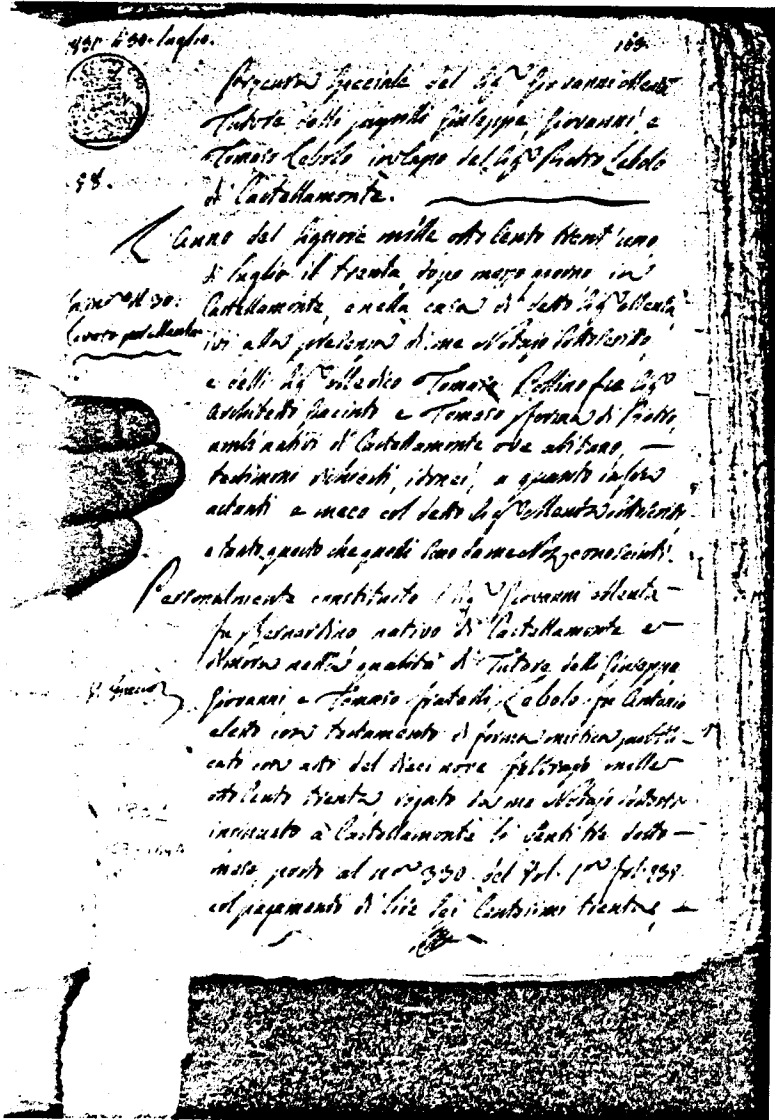 831. li 30. luglio.
163.
Procura speciale del Sig.r Giovanni Menta
Tutore delli pupilli Giuseppe, Giovanni, e
Tomaso Labolo in Capo del Sig.r Pietro Labolo
di Castellamonte.
58.
L'anno del Signore mille otto cento trent'uno
di luglio il trenta dopo mezzo giorno in
Castellamonte, e nella casa di detto Sig.r Menta
ivi alla presenza di me Notajo sottoscritto,
e delli Sig.r Medico Tomaso Pollino fu Sig.r
Architetto Giacinto e Tomaso Sforma di Pietro,
ambi nativi di Castellamonte ove abitano, —
testimoni richiesti, idonei, a quanto infra
astanti e meco col detto Sig.r Menta sottoscritti
e tanto questo che quelli sono da me Not.o conosciuti.
Personalmente constituito il Sig.r Giovanni Menta —
fu Bernardino nativo di Castellamonte e
dimora nella qualità di Tutore delli Giuseppe
Giovanni, e Tomaso fratelli Labolo fu Antonio
eletto con testamento di forma mistica pubbli-
cato con atto del dieci nove febbrajo mille
otto cento trenta rogato da me Notajo sottoscr.
insinuato a Castellamonte li venti tre detto —
mese, posto al n.ro 330. del Vol. 1.mo fol. 339.
col pagamento di lire sei centesimi trenta, —